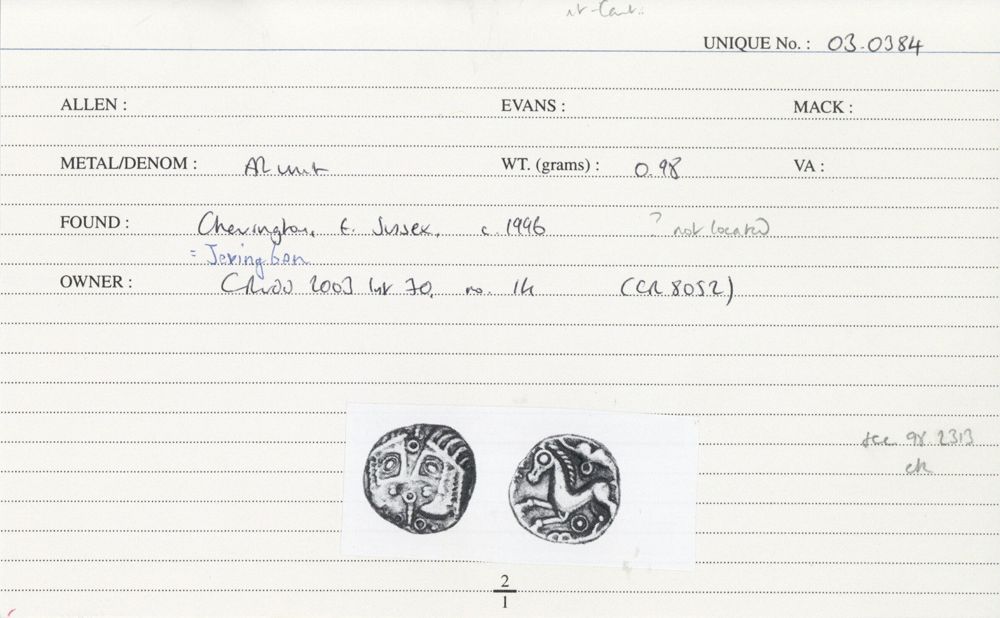 UNIQUE No. : 03.0384
ALLEN : EVANS : MACK :
METAL/DENOM : AR unit WT. (grams) : 0.98 VA :
FOUND : Chevington, E. Sussex, c. 1996 ? not located
= Jevington
OWNER : 2003 lot 70, no. 14 (CR 8052)
see 98.2313
2
1